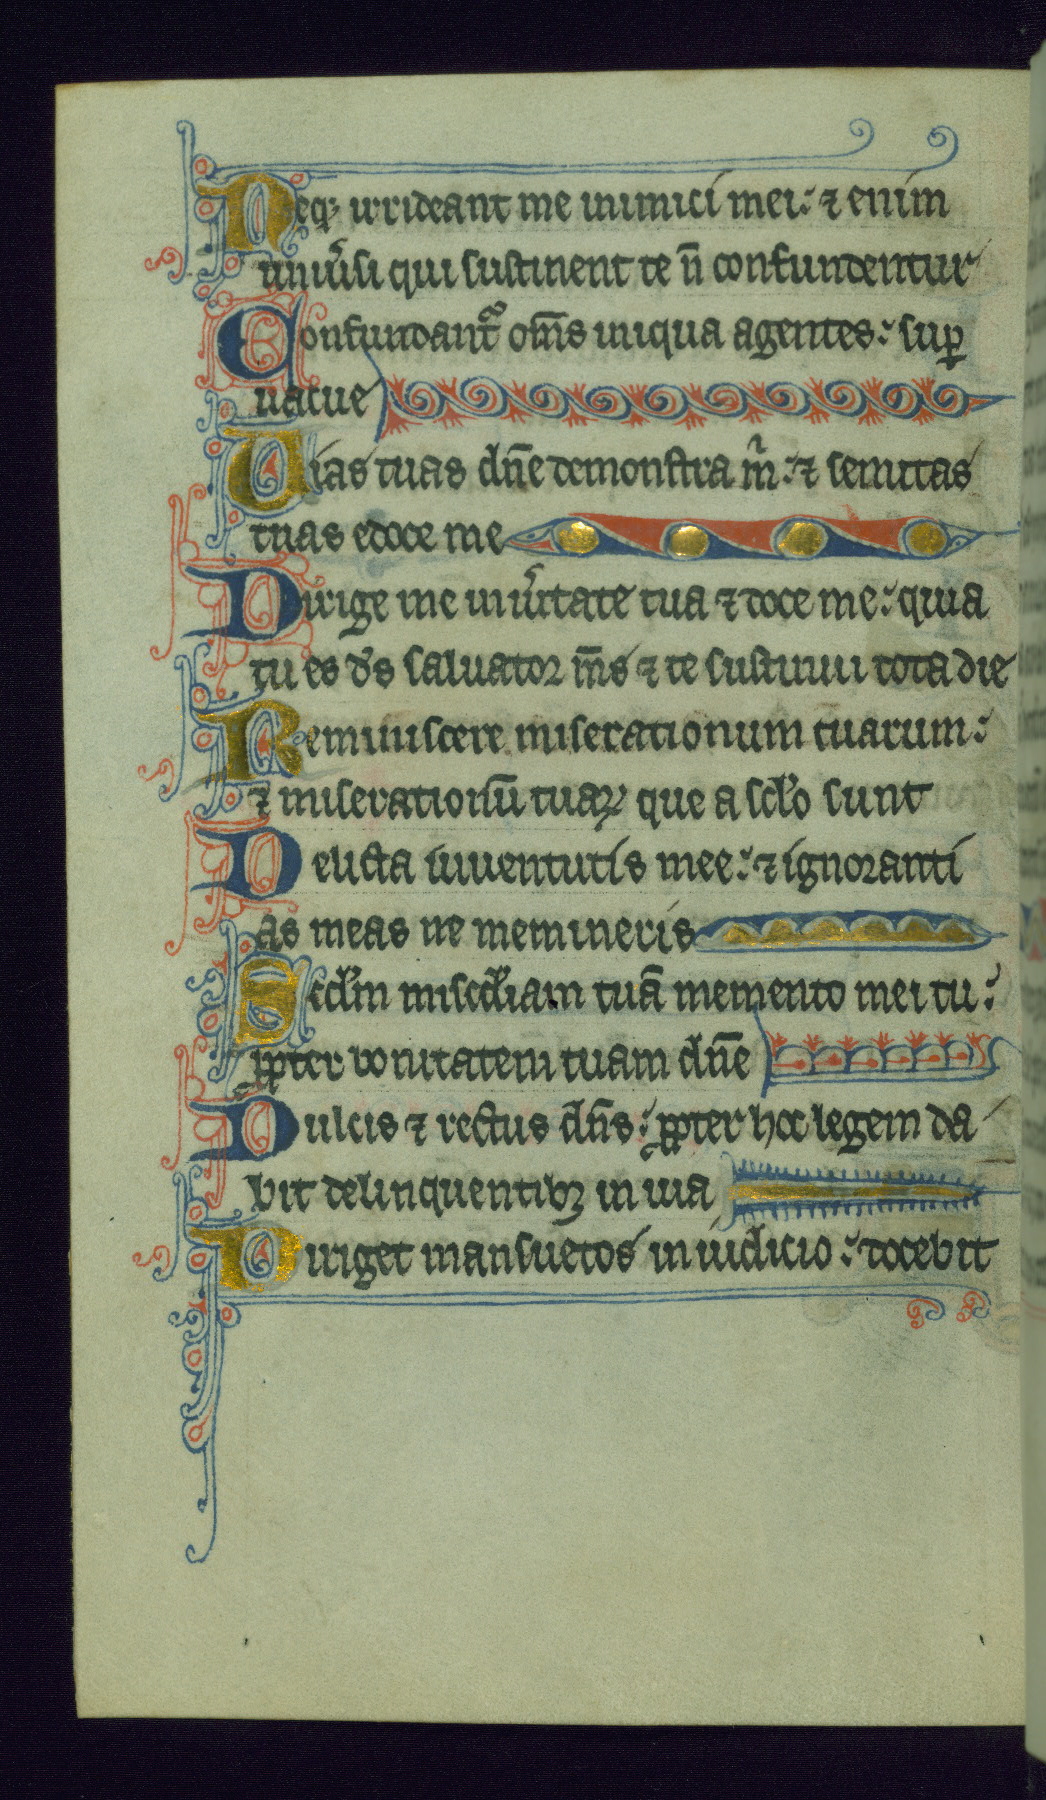 Neqꝫ irrideant me inimici mei: ⁊ enim
uniu͛si qui sustinent te n̄ confundentur
Confundant᷑ om̄s iniqua agentes: sup̲
uacue
Uias tuas dn̄e demonstra m̍: ⁊ semitas
tuas edoce me
Dirige me in u͛itate tua ⁊ doce me: quia
tu es d̄s saluator m̄s ⁊ te sustinui tota die
Reminiscere miserationum tuarum:
⁊ miserationū tuaꝝ que a sc̄lo sunt
Delicta iuuentutis mee: ⁊ ignoranti
as meas ne memineris
Sccd̄m misc̄diam tuā memento mei tu:
ꝓpter bonitatem tuam dn̄e
Dulcis ⁊ rectus dn̄s: ꝓpter hoc legem da
bit delinquentibꝫ in uia
Diriget mansuetos in iudicio: docebit